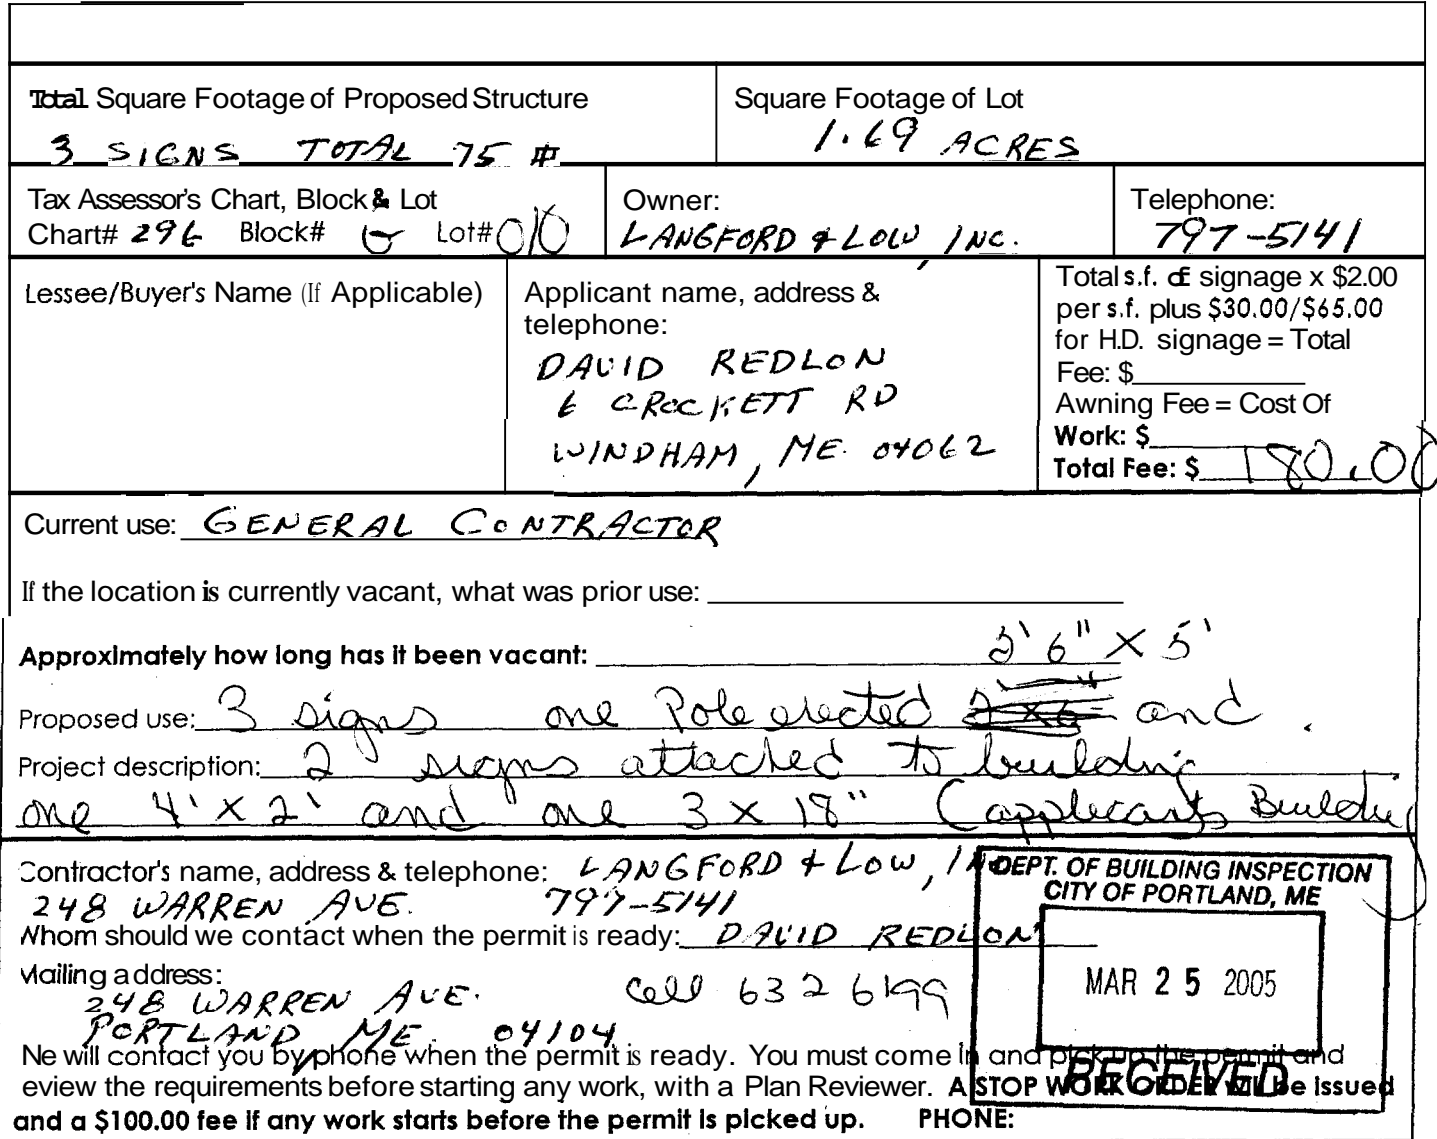 Total Square Footage of Proposed Structure
3 SIGNS TOTAL 75 #
Square Footage of Lot
1.69 ACRES
Tax Assessor's Chart, Block & Lot
Chart# 296 Block# G Lot# 010
Owner:
LANGFORD & LOW, INC.
Telephone:
797-5141
Lessee/Buyer's Name (If Applicable)
Applicant name, address &
telephone:
DAVID REDLON
6 CROCKETT RD
WINDHAM, ME. 04062
Total s.f. of signage x $2.00
per s.f. plus $30.00/$65.00
for H.D. signage = Total
Fee: $
Awning Fee = Cost Of
Work: $
Total Fee: $ 180.00
Current use: GENERAL CONTRACTOR
If the location is currently vacant, what was prior use:
Approximately how long has it been vacant:
3' 6" X 5'
Proposed use: 3 signs one Pole erected and
Project description: 2 signs attached to building
one 4' X 2' and one 3 X 18" (applicants Building)
Contractor's name, address & telephone: LANGFORD & LOW, INC
248 WARREN AVE. 797-5141
Whom should we contact when the permit is ready: DAVID REDLON
Mailing address:
248 WARREN AVE. Cell 632 6199
PORTLAND, ME. 04104
DEPT. OF BUILDING INSPECTION
CITY OF PORTLAND, ME
MAR 25 2005
RECEIVED
We will contact you by phone when the permit is ready. You must come in and pick up the permit and
review the requirements before starting any work, with a Plan Reviewer. A STOP WORK ORDER will be issued
and a $100.00 fee if any work starts before the permit is picked up. PHONE: